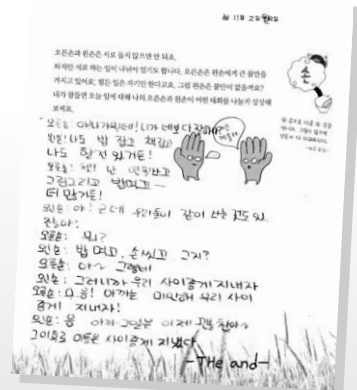 11월 2일 월요일
손
오른손과 왼손은 서로 돕지 않으면 안 되죠.
하지만 서로 하는 일이 나뉘어 있기도 합니다. 오른손은 왼손에게 큰 불만을
가지고 있어요. 힘든 일은 자기만 한다고요. 그럼 왼손은 불만이 없을까요?
내가 잠들면 오늘 일에 대해 나의 오른손과 왼손이 어떤 대화를 나눌지 상상해
보세요.
오른손: 아니
왼손: 나도 밥 잡고
나도 할 건 있거든!
오른손: 난
그림그리고 밥먹고~
더 많거든!
왼손: 야! 근데 우리들이 같이 쓰는 것도 있
잖아!
오른손: 뭐?
왼손: 밥 먹고, 손씻고 그지?
오른손: 아~ 그렇네
왼손: 그러니까 우리 사이좋게 지내자
오른손: 응! 아까는 미안해 우리 사이
좋게 지내자!
왼손: 응 이제 괜찮아~
그 이후로 이들은 사이좋게 지냈다
-The and-